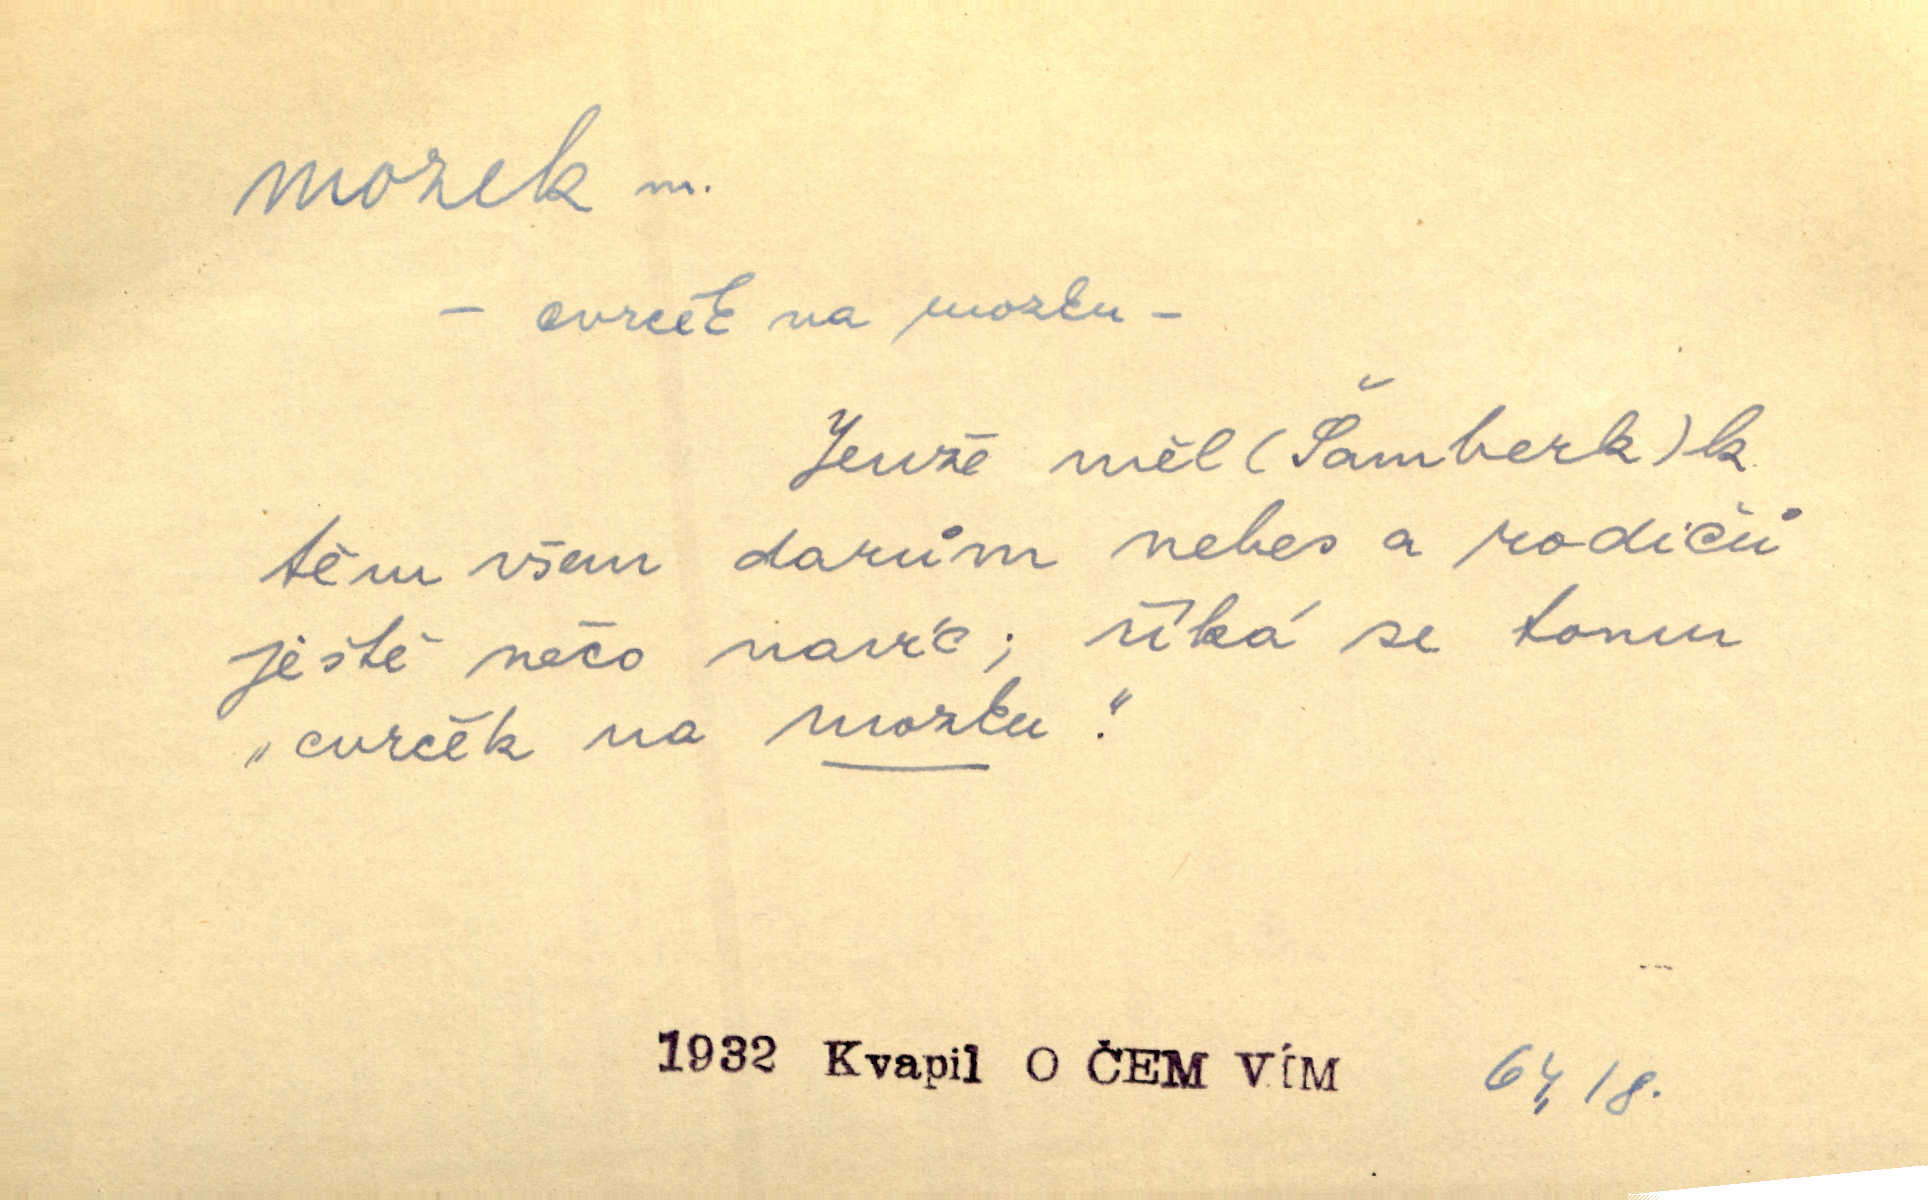 mozek m.
– cvrček na mozku –
Jenže měl (Šamberk) k
těm všem darům nebes a rodičů
ještě něco navíc; říká se tomu
„cvrček na mozku“.
1932 Kvapil O ČEM VÍM 18.